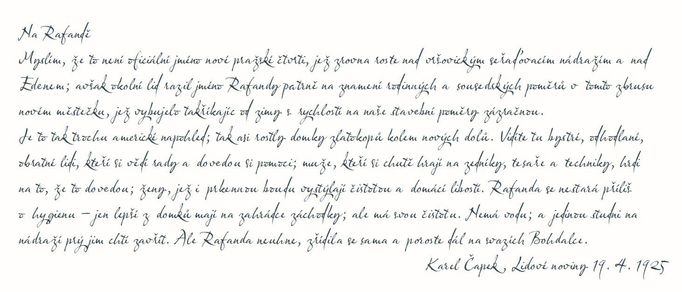 Na Rafandě
Myslím, že to není oficiální jméno nové pražské čtvrti, jež zrovna roste nad vršovickým seřaďovacím nádražím a nad
Edenem; avšak okolní lid razil jméno Rafandy patrně na znamení rodinných a sousedských poměrů v tomto zbrusu
novém městečku, jež vybujelo takříkajíc od zimy s rychlostí na naše stavební poměry zázračnou.
Je to tak trochu americké napohled; tak asi rostly domky zlatokopů kolem nových dolů. Vidíte tu bystré, odhodlané,
obratné lidi, kteří si vědí rady a dovedou si pomoci; muže, kteří si chutě hrají na zedníky, tesaře a techniky, hrdi
na to, že to dovedou; ženy, jež i prkennou boudu vystýlají čistotou a domácí libostí. Rafanda se nestará příliš
o hygienu – jen lepší z domků mají na zahrádce záchodky; ale má svou čistotu. Nemá vodu; a jedinou studni na
nádraží prý jim chtí zavřít. Ale Rafanda neuhne, zřídila se sama a poroste dál na svazích Bohdalce.
Karel Čapek, Lidové noviny 19. 4. 1925